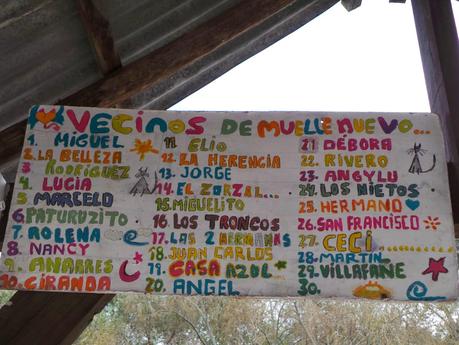 VECINOS DE MUELLE NUEVO...
1. MIGUEL
2. LA BELLEZA
3. RODRIGUEZ
4. LUCIA
5. MARCELO
6. PATURUZITO
7. ROLENA
8. NANCY
9. ANARRES
10. GIRANDA
11. ELIO
12. LA HERENCIA
13. JORGE
14. EL ZORZAL...
15. MIGUELITO
16. LOS TRONCOS
17. LAS 2 HERMANAS
18. JUAN CARLOS
19. CASA AZUL
20. ANGEL
21. DÉBORA
22. RIVERO
23. ANGYLU
24. LOS NIETOS
25. HERMANO
26. SAN FRANCISCO
27. CECI
28. MARTIN
29. VILLAFAÑE
30.